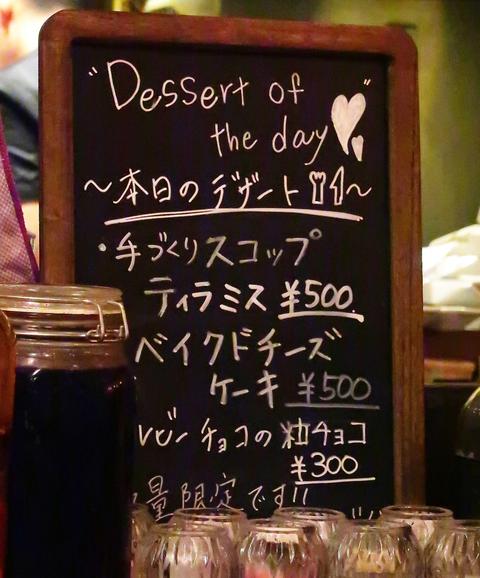 "Dessert of
the day"
～本日のデザート～
・手づくりスコップ
ティラミス ¥500
ベイクドチーズ
ケーキ ¥500
ルビーチョコの粒チョコ
¥300
量限定です!!